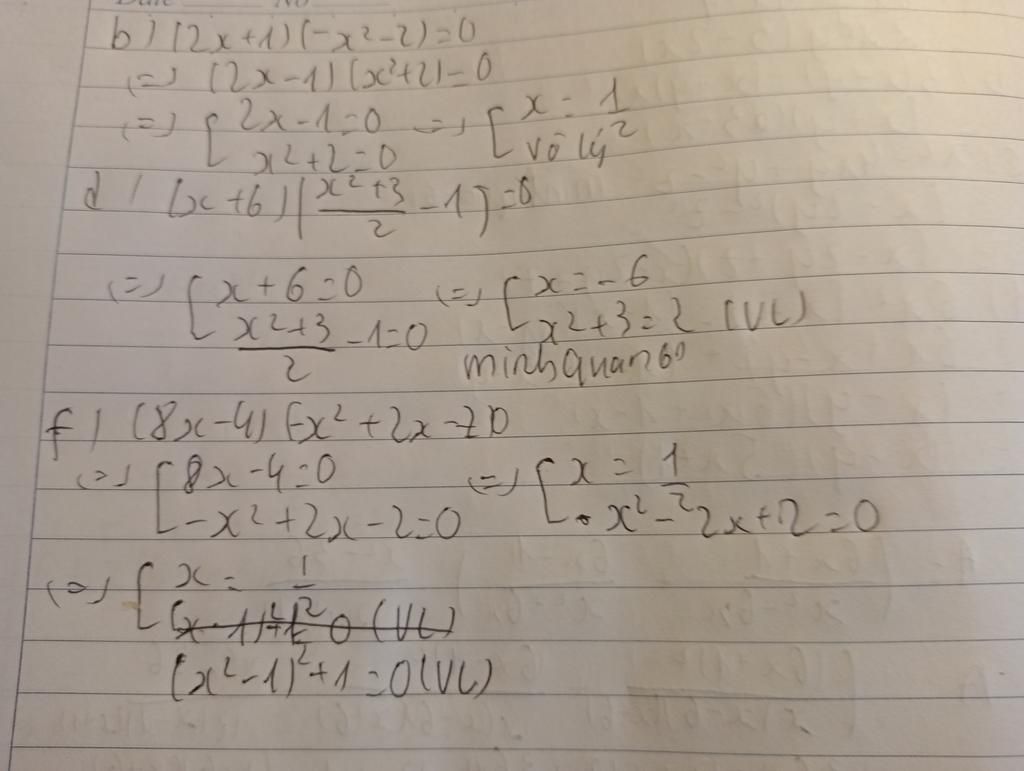 b) (2x+1)(-x²-2)=0
(=) (2x-1)(x²+2)=0
(=) [ 2x-1=0 (=) [ x = 1/2
x²+2=0 vô lý
d) (x+6)(x²+3/2 - 1)=0
(=) [ x+6=0 (=) [ x=-6
x²+3/2 - 1=0 x²+3=2 (VL)
minhquan60
f) (8x-4)(-x²+2x-2)0
(=) [ 8x-4=0 (=) [ x = 1/2
-x²+2x-2=0 x²-2x+2=0
(=) [ x = 1/2
(x²-1)²+1=0(VL)